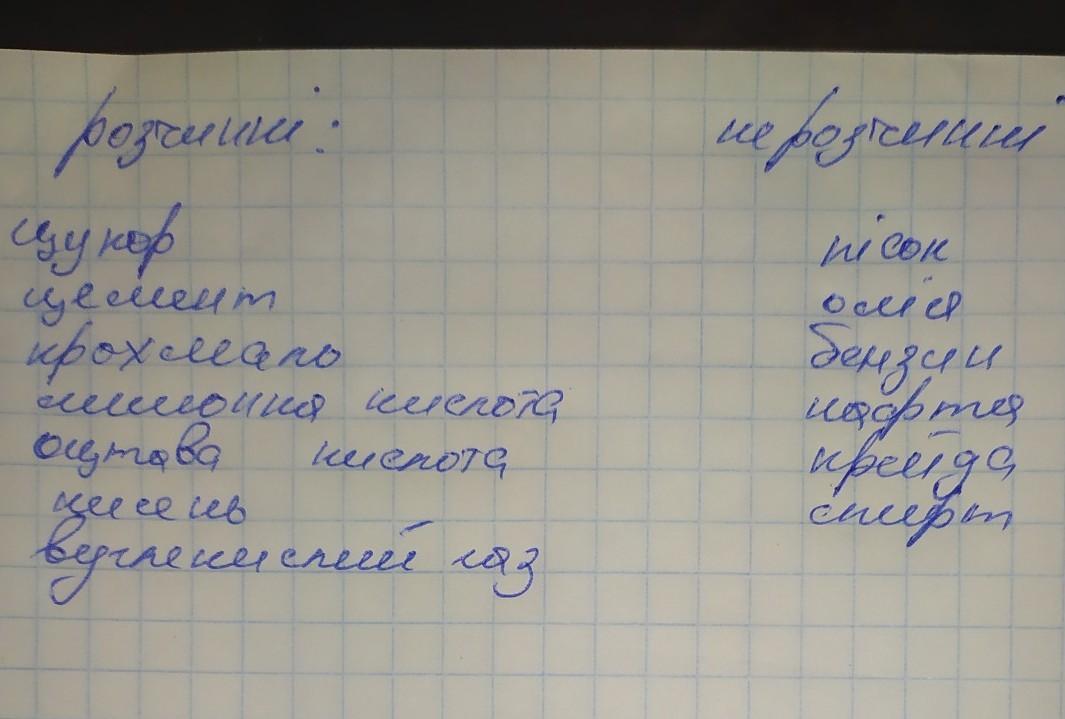 розчинні:
цукор
цемент
крохмаль
лимонна кислота
оцтова кислота
кисень
вуглекислий газ
не розчинні
пісок
олія
бензин
нафта
крейда
спирт